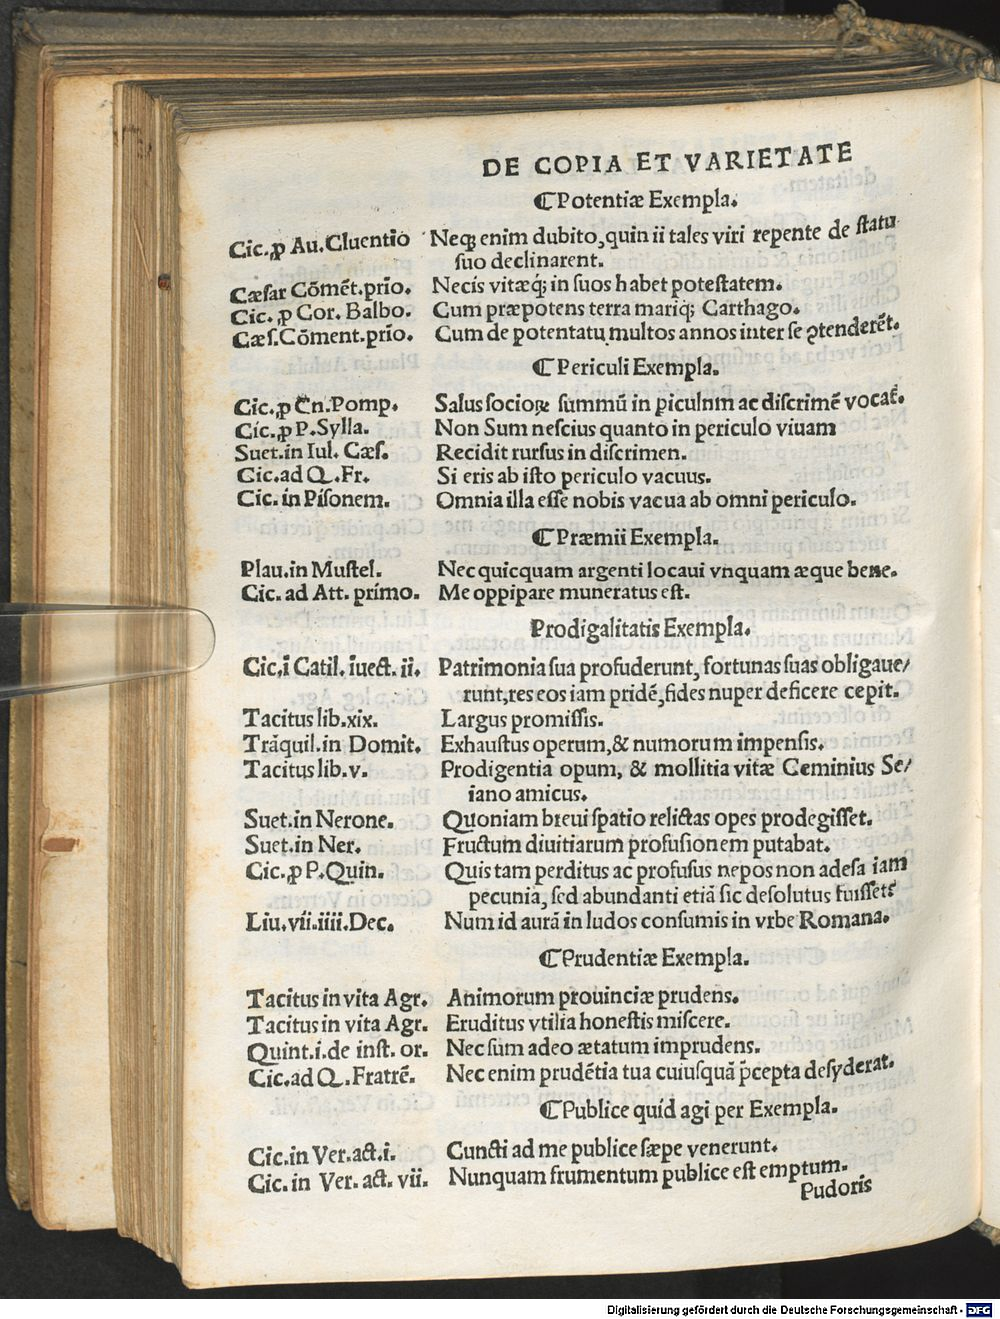 DE COPIA ET VARIETATE
❡Potentiæ Exempla.
Cic. ꝓ Au. Cluentio Neqꝫ enim dubito, quin ii tales viri repente de ſtatu
ſuo declinarent.
Cæſar Cõmẽt. prĩo. Necis vitæqꝫ in ſuos habet poteſtatem.
Cic. ꝓ Cor. Balbo. Cum præpotens terra mariqꝫ Carthago.
Cæſ. Cõment. prĩo. Cum de potentatu multos annos inter ſe ꝯtenderẽt.
❡Periculi Exempla.
Cic. ꝓ Cn. Pomp. Salus ſocioꝝ ſummũ in piculnm ac diſcrimẽ vocat̃.
Cic. ꝓ P. Sylla. Non Sum neſcius quanto in periculo viuam
Suet. in Iul. Cæſ. Recidit rurſus in diſcrimen.
Cic. ad Q. Fr. Si eris ab iſto periculo vacuus.
Cic. in Piſonem. Omnia illa eſſe nobis vacua ab omni periculo.
❡Præmii Exempla.
Plau. in Muſtel. Nec quicquam argenti locaui vnquam æque bene.
Cic. ad Att. primo. Me oppipare muneratus eſt.
Prodigalitatis Exempla.
Cic. ĩ Catil. ĩuect. ii. Patrimonia ſua profuderunt, fortunas ſuas obligaue/
runt, res eos iam pridẽ, fides nuper deficere cepit.
Tacitus lib. xix. Largus promiſſis.
Trãquil. in Domit. Exhauſtus operum, & numorum impenſis.
Tacitus lib. v. Prodigentia opum, & mollitia vitæ Geminius Se/
iano amicus.
Suet. in Nerone. Quoniam breui ſpatio relictas opes prodegiſſet.
Suet. in Ner. Fructum diuitiarum profuſionem putabat.
Cic. ꝓ P. Quin. Quis tam perditus ac profuſus nepos non adeſa iam
pecunia, ſed abundanti etiã ſic deſolutus fuiſſet?
Liu. vii. iiii. Dec. Num id aurã in ludos conſumis in vrbe Romana.
❡Prudentiæ Exempla.
Tacitus in vita Agr. Animorum prouinciæ prudens.
Tacitus in vita Agr. Eruditus vtilia honeſtis miſcere.
Quint. i. de inſt. or. Nec ſum adeo ætatum imprudens.
Cic. ad Q. Fratrẽ. Nec enim prudẽtia tua cuiusquã p̃cepta deſyderat.
❡Publice quid agi per Exempla.
Cic. in Ver. act. i. Cuncti ad me publice ſæpe venerunt.
Cic. in Ver. act. vii. Nunquam frumentum publice eſt emptum.
Pudoris
Digitalisierung gefördert durch die Deutsche Forschungsgemeinschaft - DFG